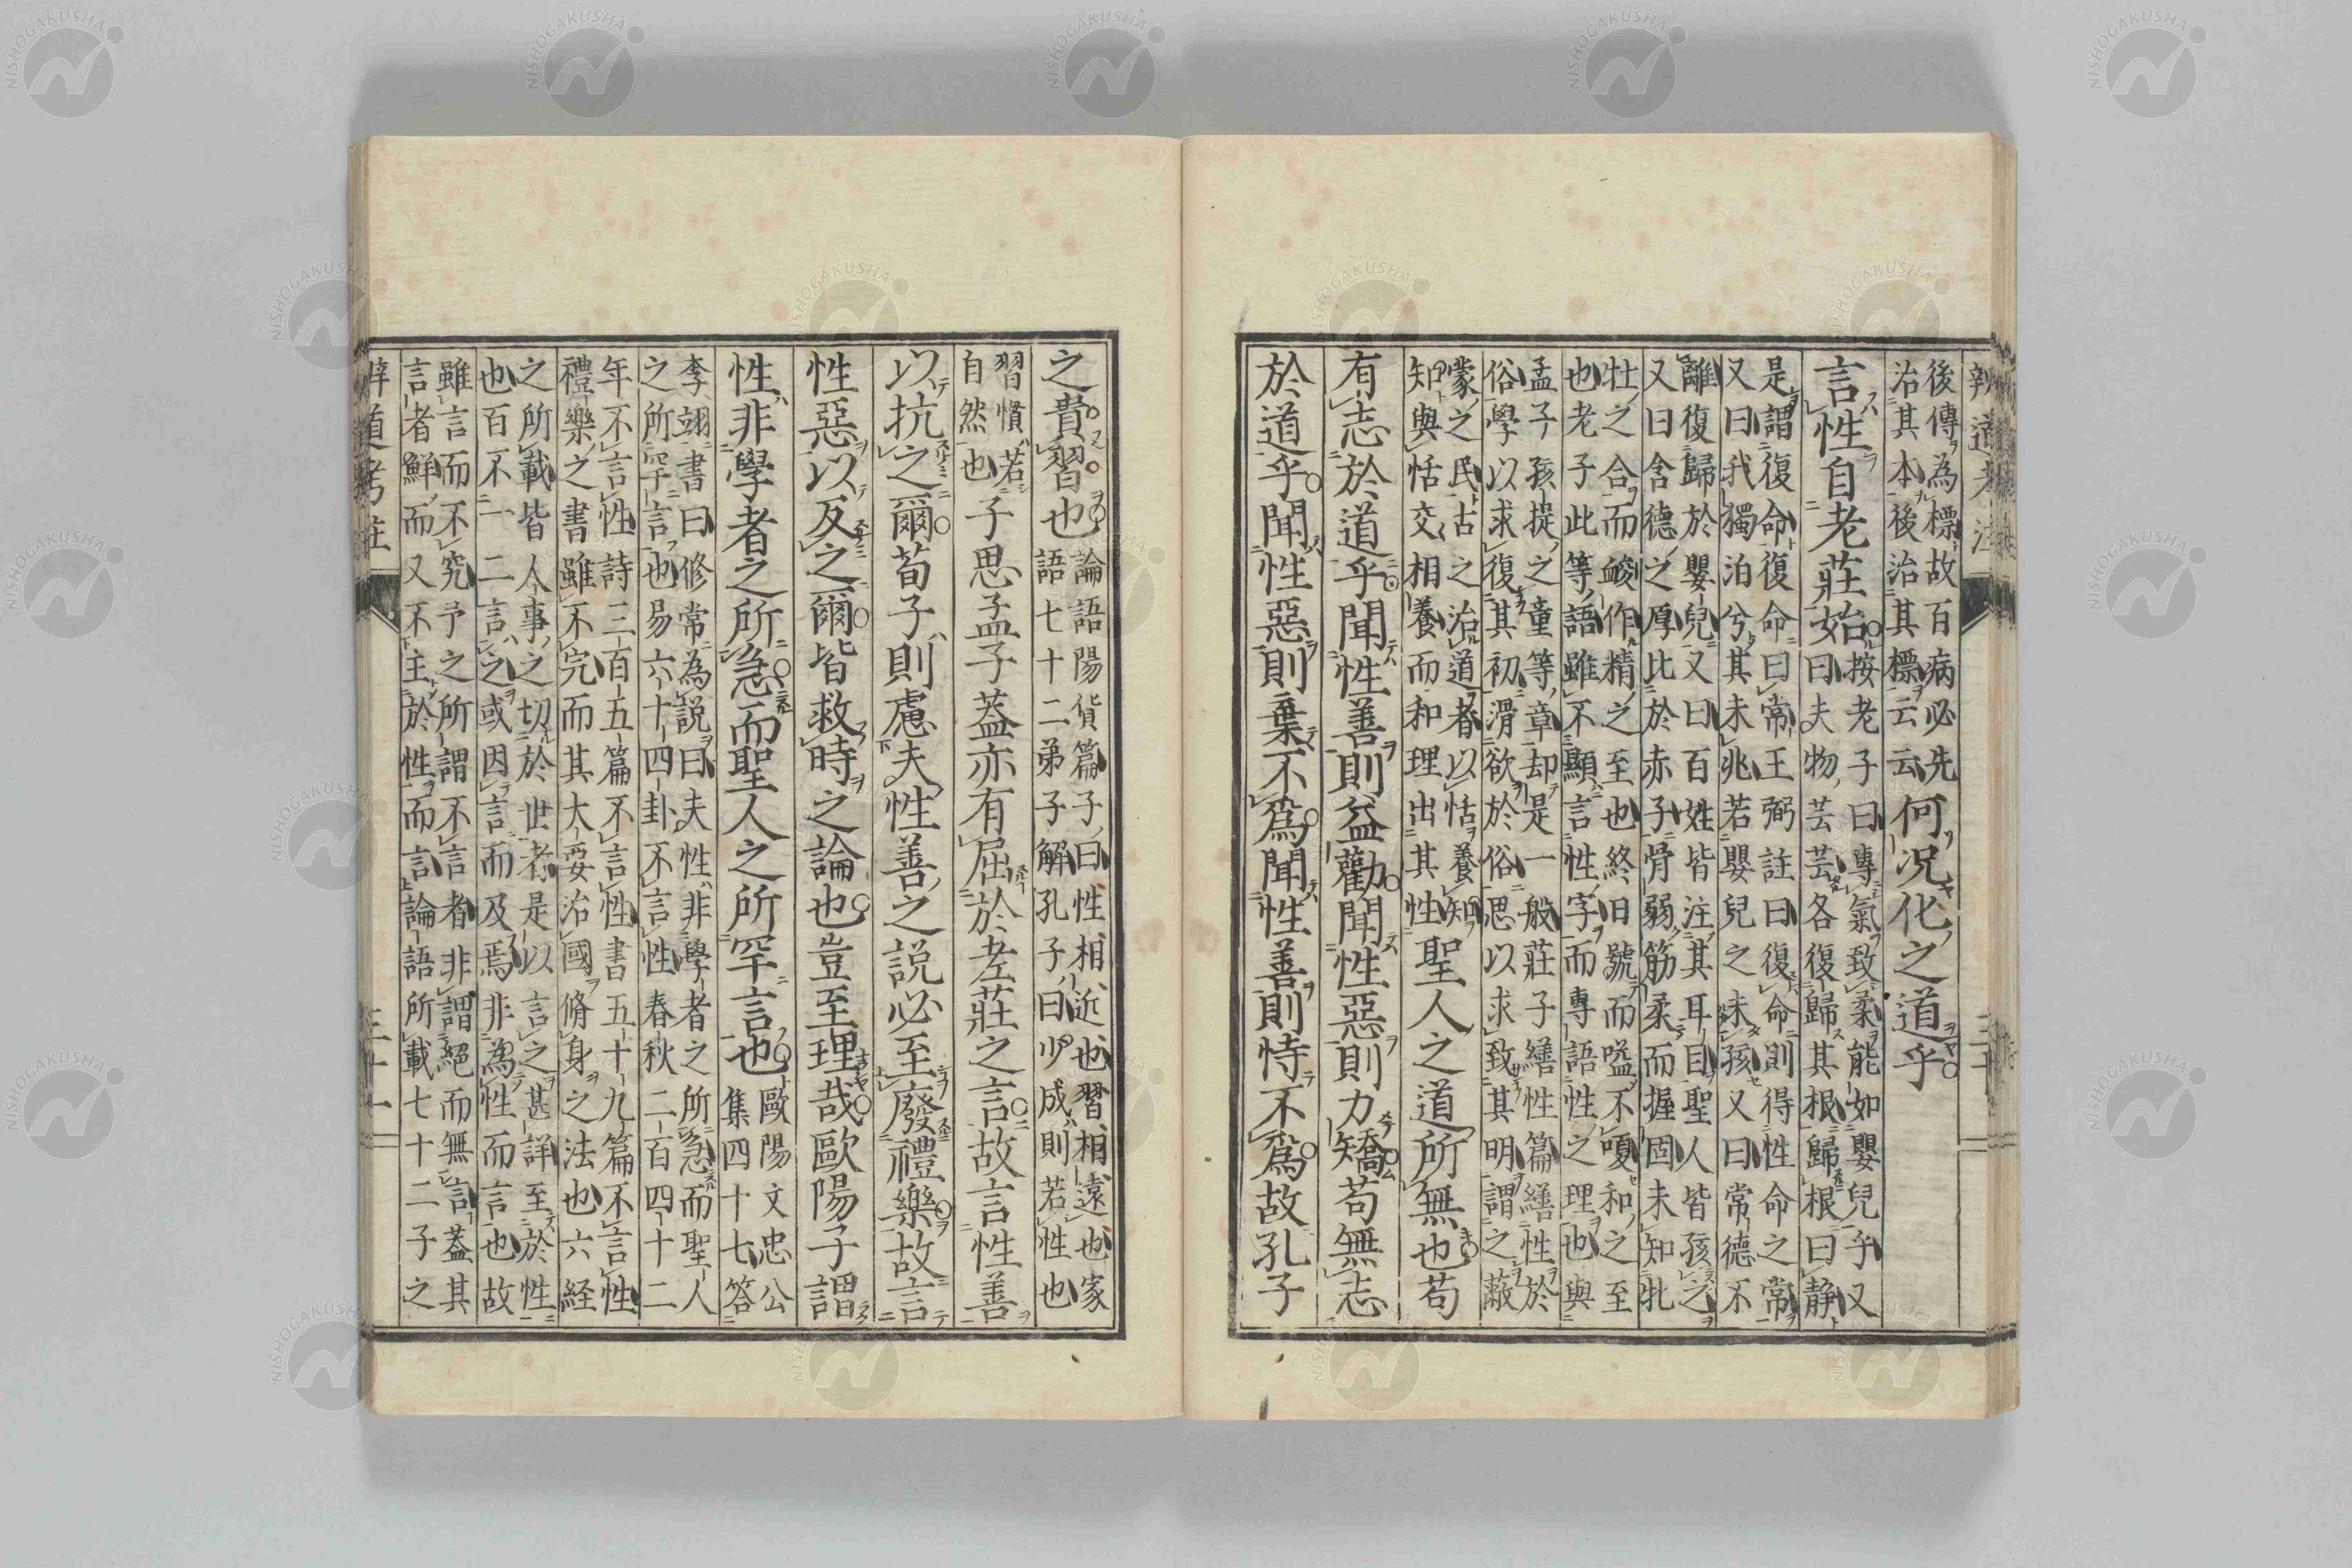 辨道考注
三十
後傳為標故百病必先
治其本後治其標云云
何況化之道乎
言性自老莊始
按老子曰專氣致柔能如嬰兒乎又
曰夫物芸芸各復歸其根歸根曰静
是謂復命復命曰常王弼註曰復命則得性命之常
又曰我獨泊兮其未兆若嬰兒之未孩又曰常德不
離復歸於嬰兒又曰百姓皆注其耳目聖人皆孩之
又曰含德之厚比於赤子骨弱筋柔而握固未知牝
牡之合而峻作精之至也終日號而嗌不嗄和之至
也老子此等語雖不顯言性字而專語性之理也與
孟子孩提之童等章却是一般莊子繕性篇繕性於
俗學以求復其初滑欲於俗思以求致其明謂之蔽
蒙之民古之治道者以恬養知
知與恬交相養而和理出其性
聖人之道所無也苟
有志於道乎聞性善則益勸聞性惡則力矯苟無志
於道乎聞性惡則棄不爲聞性善則恃不爲故孔子
之貴習也
論語陽貨篇子曰性相近也習相遠也家
語七十二弟子解孔子曰少成則若性也
習慣若
自然也
子思孟子蓋亦有屈於老莊之言故言性善
以抗之爾荀子則慮夫性善之説必至廢禮樂故言
性惡以反之爾皆救時之論也豈至理哉歐陽子謂
性非學者之所急而聖人之所罕言也
歐陽文忠公
集四十七答
李翊書曰修常為説曰夫性非學者之所急而聖人
之所罕言也易六十四卦不言性春秋二百四十二
年不言性詩三百五篇不言性書五十九篇不言性
禮樂之書雖不完而其大要治國脩身之法也六経
之所載皆人事之切於世者是以言之甚詳至於性
也百不一二言之或因言而及焉非為性而言也故
雖言而不究予之所謂不言者非謂絕而無言蓋其
言者鮮而又不主於性而言論語所載七十二子之
辨道考註
三十一
NISHOGAKUSHA